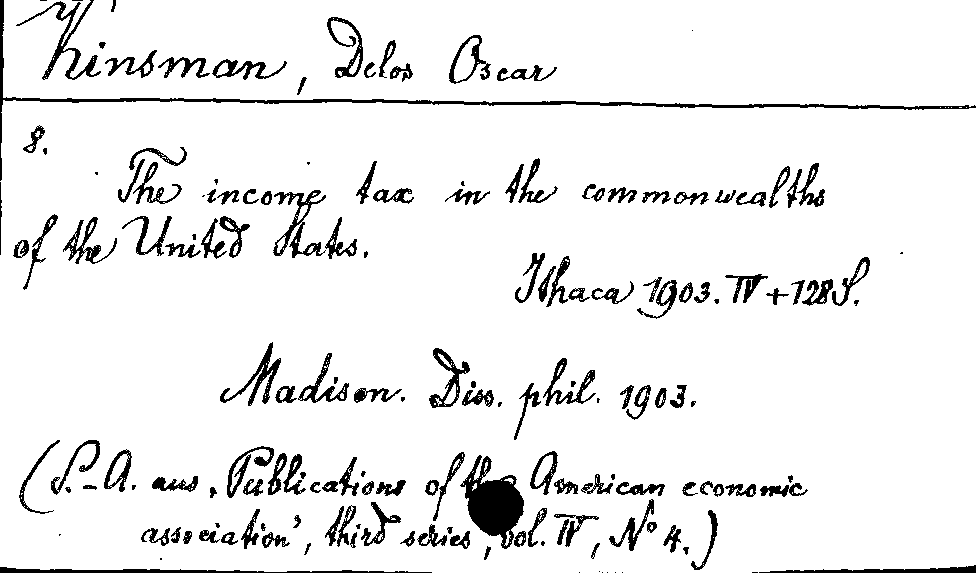 Kinsman, Delos Oscar
8.
The income tax in the commonwealths
of the United States.
Ithaca 1903. IV + 128 S.
Madison. Diss. phil. 1903.
(S.-A. aus ‚Publications of the American economic
association', third series, vol. IV, No 4.)